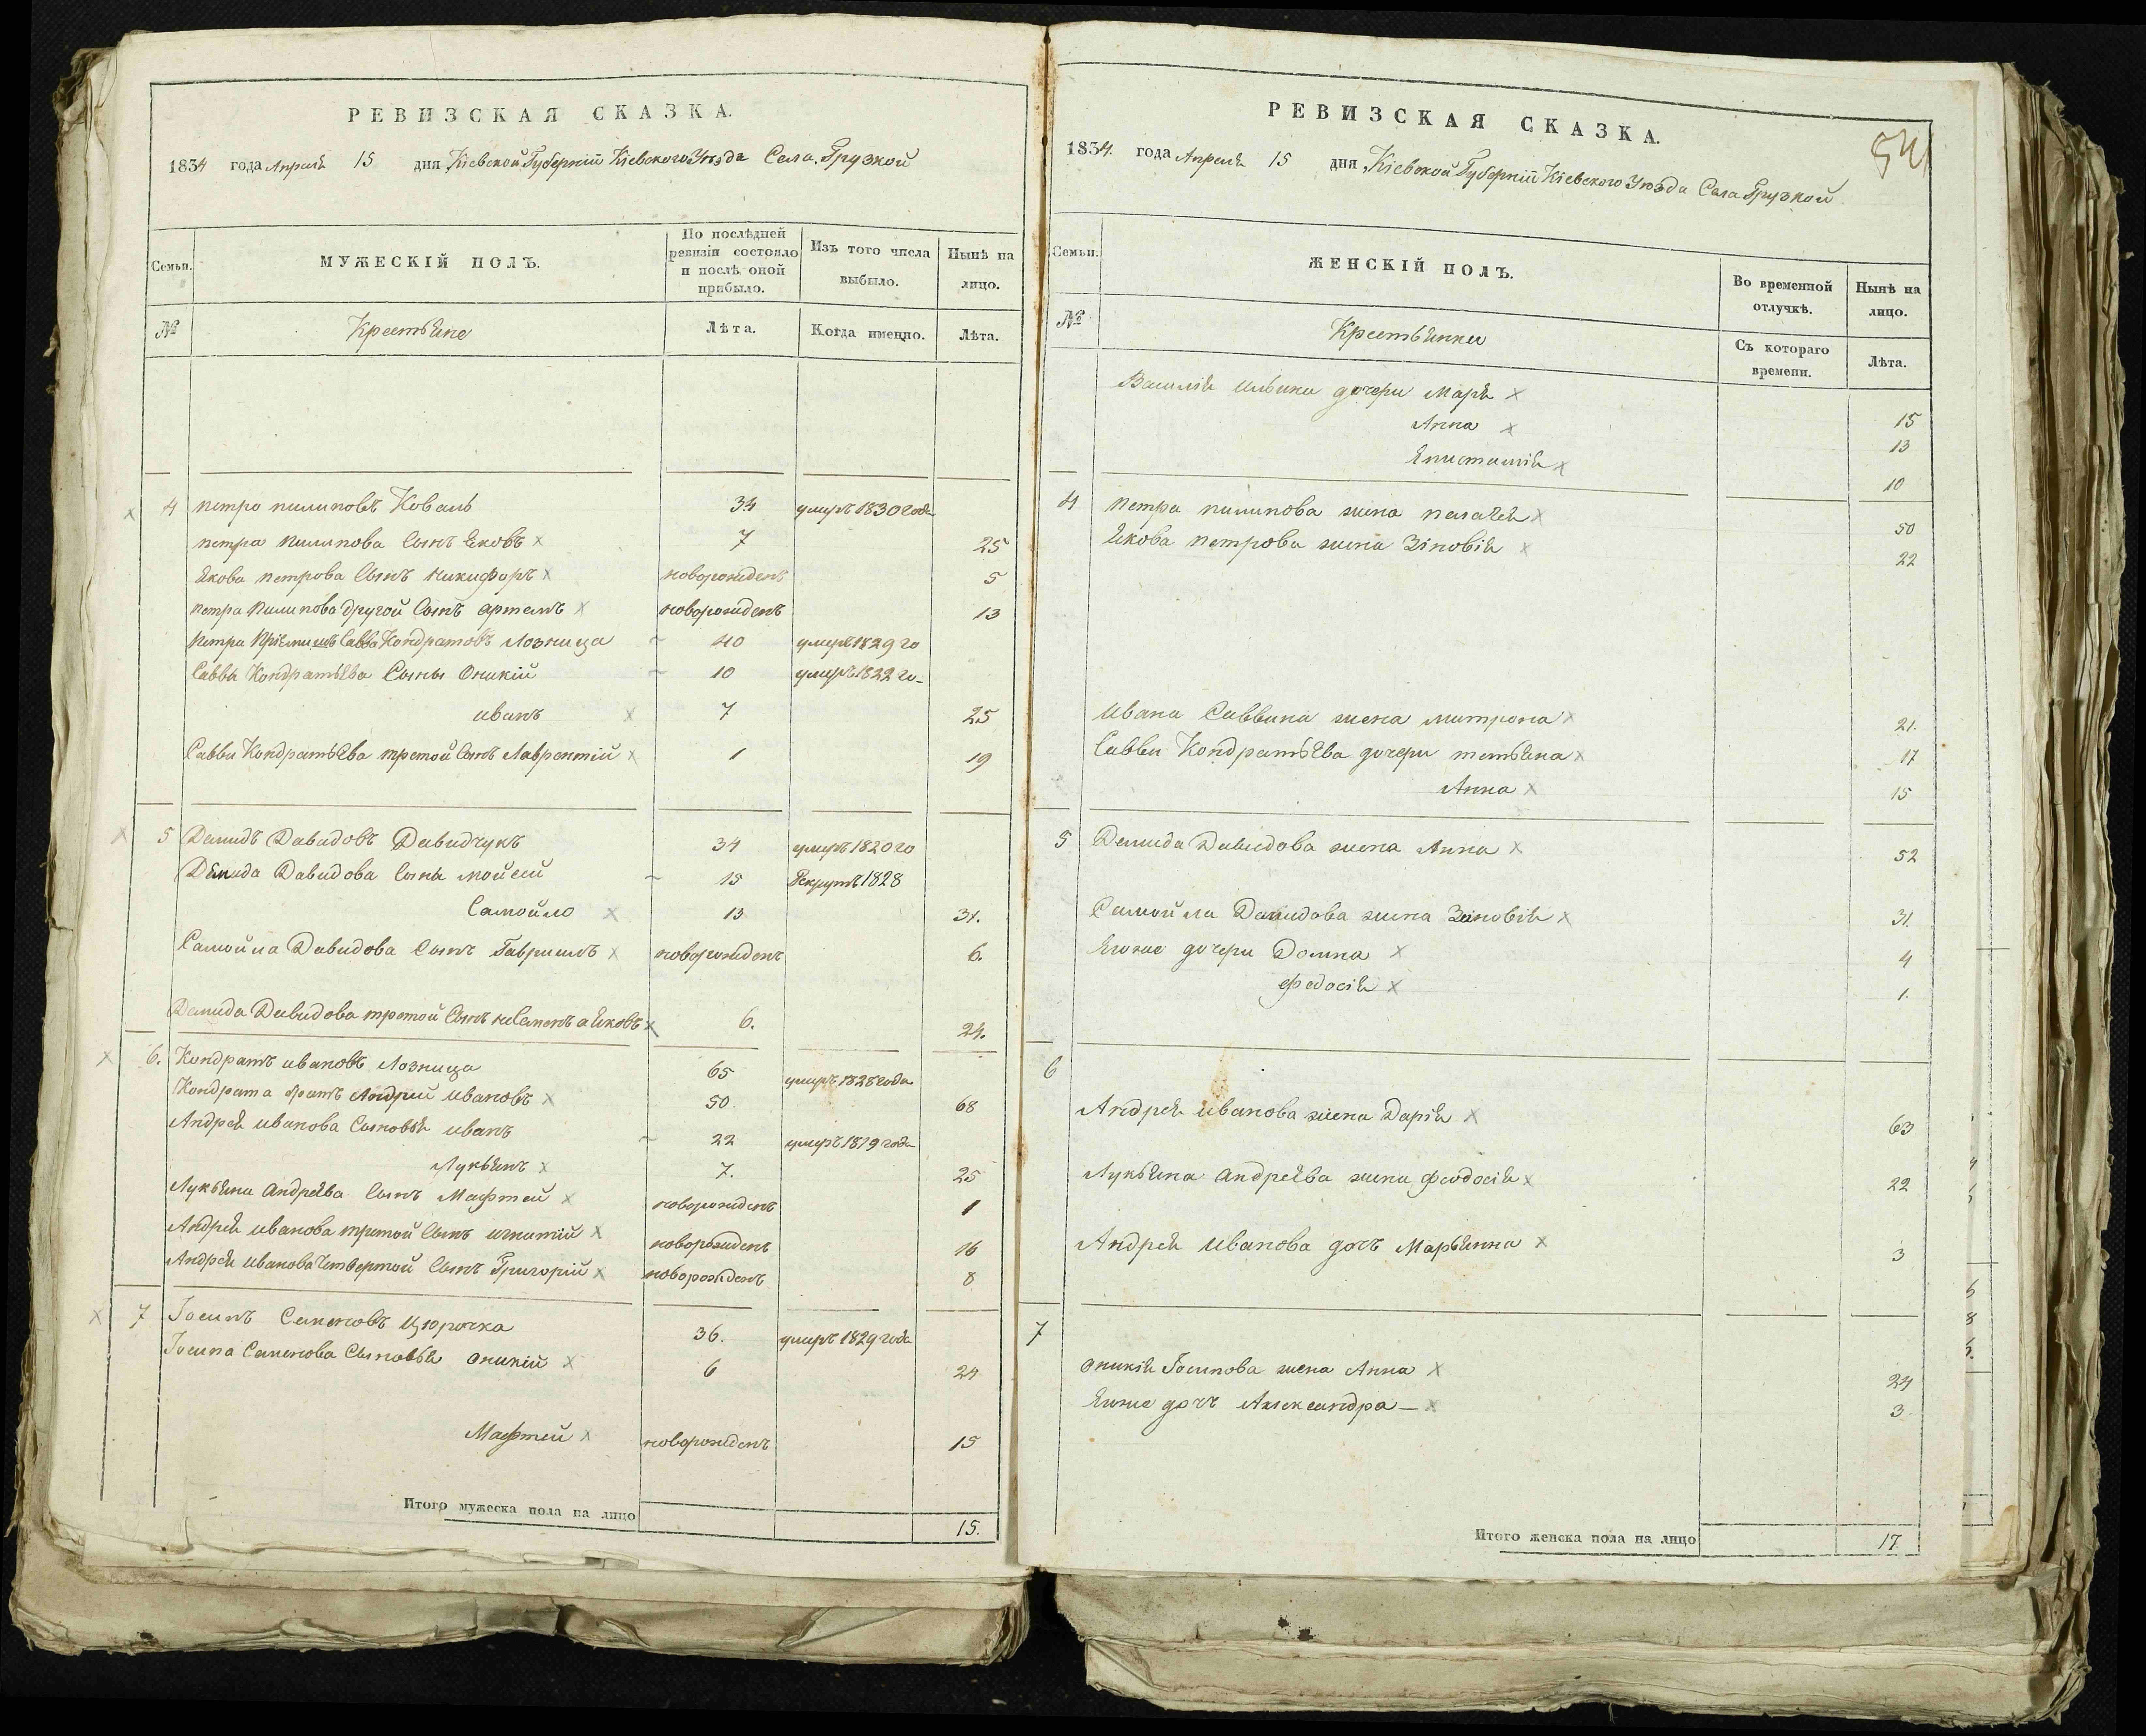 РЕВИЗСКАЯ СКАЗКА.
1834 года Апреля 15 дня Кіевской Губерніи Кіевского Уезда Села Грузкой
Семьи. МУЖЕСКІЙ ПОЛЪ. По послѣдней ревизіи состояло и послѣ оной прибыло. Изъ того числа выбыло. Нынѣ на лицо.
№ Крестьяне Лѣта. Когда именно. Лѣта.
4 петро пилиповъ Коваль 34 умеръ 1830 года
петра пилипова Сынъ Яковъ 7 25
Якова петрова Сынъ никифоръ новорожденъ 5
петра пилипова другой Сынъ артемъ новорожденъ 13
петра Савва Кондратовъ Лозница 40 умеръ 1829 го
Саввы Кондратьева Сыны Оникій 10 умеръ 1822 го
иванъ 7 25
Саввы Кондратьева третой Сынъ Лаврентій 1 19
5 Демидъ Давидовъ Давидчукъ 34 умеръ 1820 го
Демида Давидова Сыны мойсей 15 Рекрутъ 1828
Самойло 13 31.
Самойла Давидова Сынъ Гавриилъ новорожденъ 6.
Демида Давидова третой Сынъ не Семенъ а Яковъ 6. 24.
6. Кондратъ ивановъ Лозница 65 умеръ 1828 года
Кондрата братъ Андрей ивановъ 50. 68
Андрея иванова Сыновья иванъ 22 умеръ 1819 года
Лукьянъ 7. 25
Лукьяна андреева Сынъ Мафтей новорожденъ 1
Андрея иванова третой Сынъ игнатій новорожденъ 16
Андрея иванова Четвертой Сынъ Григорій новорожденъ 8
7 Іосипъ Семеновъ Цюрочка 36. умеръ 1829 года
Іосипа Семенова Сыновья оникій 6 24
Мафтей новорожденъ 15
Итого мужеска пола на лицо 15.
РЕВИЗСКАЯ СКАЗКА.
54
1834. года Апреля 15 дня Кіевской Губерніи Кіевского Уезда Села Грузкой
Семьи. ЖЕНСКІЙ ПОЛЪ. Во временной отлучкѣ. Нынѣ на лицо.
№ Крестьянки Съ котораго времени. Лѣта.
Василія дочери Маря 15
Анна 13
Епистимія 10
4 петра пилипова жена пелагея 50
Якова петрова жена Зіновія 22
Ивана Саввина жена митрона 21.
Саввы Кондратьева дочери тетьяна 17
Анна 15
5 Демида Давидова жена Анна 52
Самойла Давидова жена Зиновія 31.
Ягоже дочери Домна 4
Федосія 1.
6
Андрея иванова жена Дарія 63
Лукьяна андреева жена феодосія 22
Андрея иванова дочъ Марьянна 3
7
оникія Іосипова жена Анна 24
Ягоже дочъ Александра 3
Итого женска пола на лицо 17